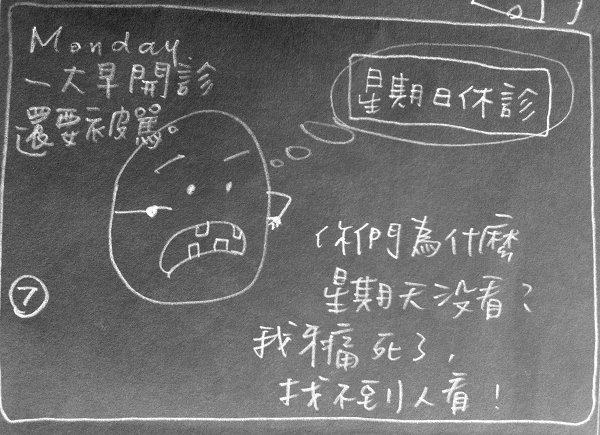 Monday
一大早開診
還要被罵。
星期日休診
你們為什麼
星期天沒看？
我牙痛死了，
找不到人看！
7